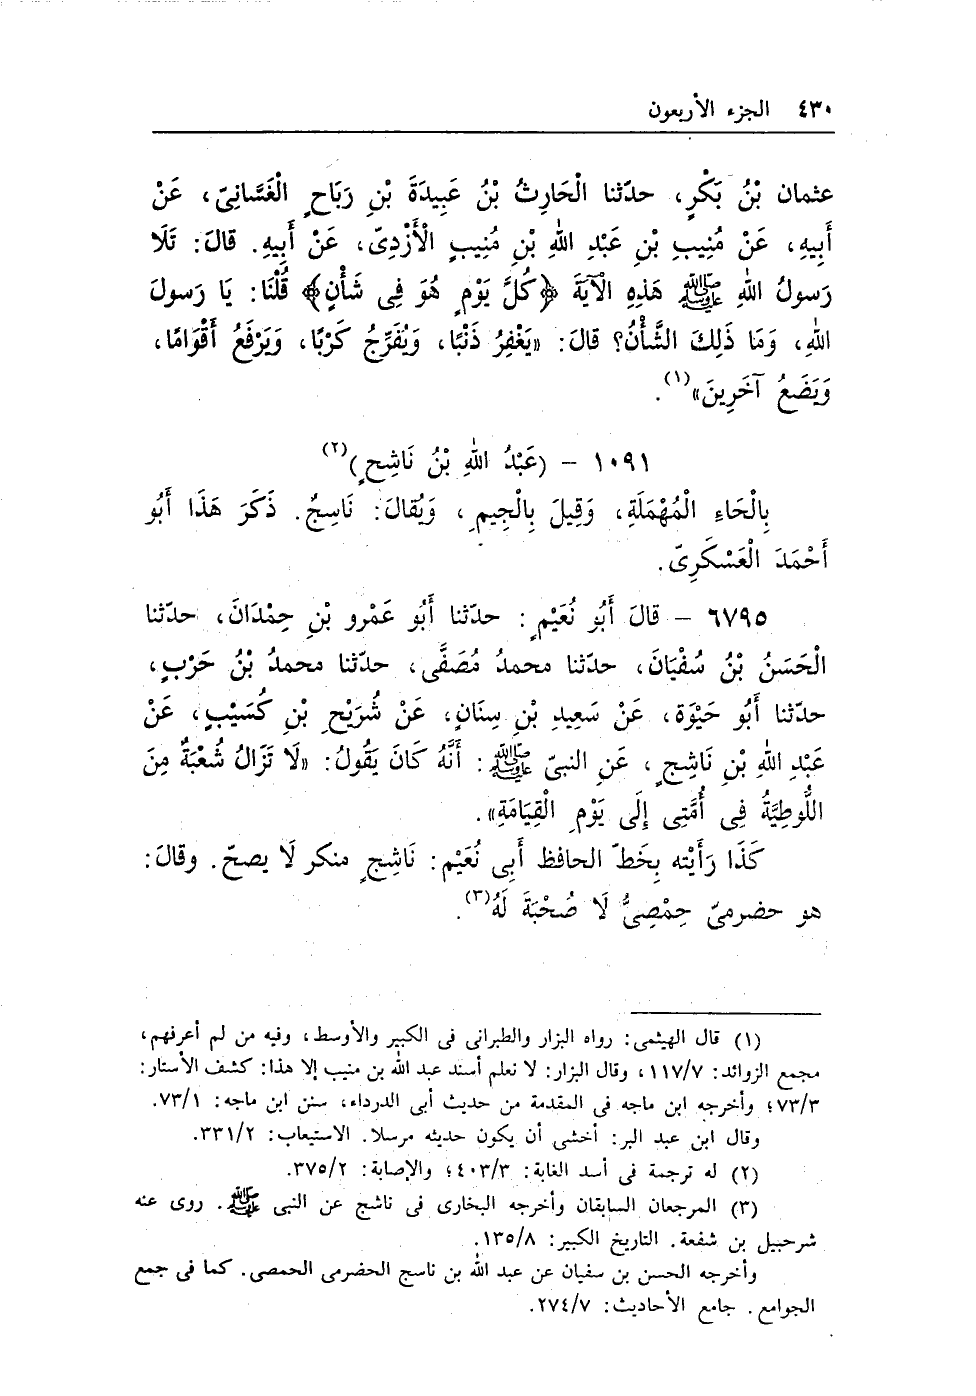 ٤٣٠ الجزء الأربعون
عثمان بْنُ بَكْرٍ، حدّثنا الْحَارِثُ بْنُ عَبِيدَةَ بْنِ رَبَاحٍ الْغَسَّانِىّ، عَنْ
أَبِيهِ، عَنْ مُنِيبِ بْنِ عَبْدِ اللهِ بْنِ مُنِيبٍ الْأَزْدِىّ، عَنْ أَبِيهِ. قالَ: تَلَا
رَسولُ اللهِ ﷺ هَذِهِ الْآيَةَ ﴿كُلَّ يَوْمٍ هُوَ فِى شَأْنٍ﴾ قُلْنَا: يَا رَسولَ
اللهِ، وَمَا ذَلِكَ الشَّأْنُ؟ قالَ: «يَغْفِرُ ذَنْبًا، وَيُفَرِّجُ كَرْبًا، وَيَرْفَعُ أَقْوَامًا،
وَيَضَعُ آخَرِينَ»(١).
١٠٩١ – (عَبْدُ اللهِ بْنُ نَاشِحٍ)(٢)
بِالْحَاءِ الْمُهْمَلَةِ، وَقِيلَ بِالْجِيمِ، وَيُقالَ: نَاسِجٌ. ذَكَرَ هَذَا أَبُو
أَحْمَدَ الْعَسْكَرِىّ.
٦٧٩٥ – قالَ أَبُو نُعَيْمٍ: حدّثنا أَبُو عَمْرِو بْنِ حِمْدَانَ، حدّثنا
الْحَسَنُ بْنُ سُفْيَانَ، حدّثنا محمدُ مُصَفَّى، حدّثنا محمدُ بْنُ حَرْبٍ،
حدّثنا أَبُو حَيْوَة، عَنْ سَعِيدِ بْنِ سِنَانٍ، عَنْ شُرَيْحِ بْنِ كُسَيْبٍ، عَنْ
عَبْدِ اللهِ بْنِ نَاشِجٍ، عَنِ النبىّ ﷺ: أَنَّهُ كَانَ يَقُولُ: «لَا تَزَالُ شُعْبَةٌ مِنَ
اللُّوطِيَّةُ فِى أُمَّتِى إِلَى يَوْمِ الْقِيَامَةِ».
كَذَا رَأَيْته بِخَطّ الحافظ أَبِى نُعَيْم: نَاشِجٍ منكر لَا يصحّ. وقالَ:
هو حضرمىّ حِمْصِىُّ لَا صُحْبَةَ لَهُ(٣).
(١) قال الهيثمى: رواه البزار والطبرانى فى الكبير والأوسط، وفيه من لم أعرفهم،
مجمع الزوائد: ١١٧/٧، وقال البزار: لا نعلم أسند عبد الله بن منيب إلا هذا: كشف الأستار:
٧٣/٣؛ وأخرجه ابن ماجه فى المقدمة من حديث أبى الدرداء، سنن ابن ماجه: ٧٣/١.
وقال ابن عبد البر: أخشى أن يكون حديثه مرسلا. الاستيعاب: ٣٣١/٢.
(٢) له ترجمة فى أسد الغابة: ٤٠٣/٣؛ والإصابة: ٣٧٥/٢.
(٣) المرجعان السابقان وأخرجه البخارى فى ناشج عن النبى ﷺ. روى عنه
شرحبيل بن شفعة. التاريخ الكبير: ١٣٥/٨.
وأخرجه الحسن بن سفيان عن عبد الله بن ناسج الحضرمى الحمصى. كما فى جمع
الجوامع. جامع الأحاديث: ٢٧٤/٧.